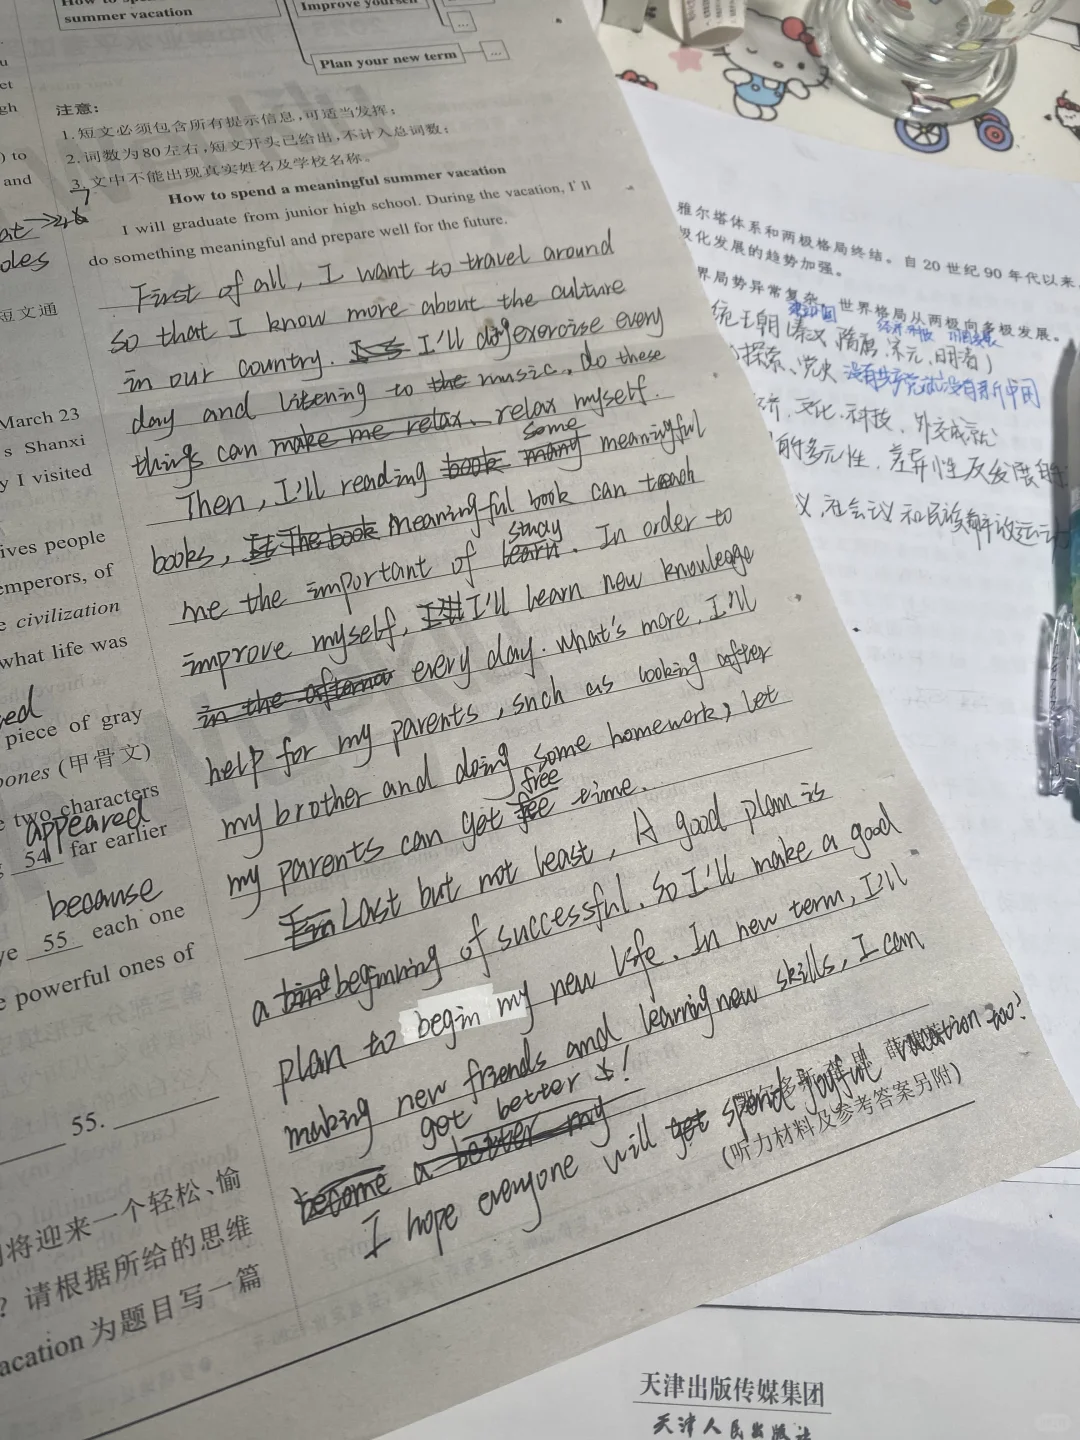 How to sp
summer vacation
Improve yourself
...
Plan your new term
...
注意:
1.短文必须包含所有提示信息,可适当发挥;
2.词数为80左右,短文开头已给出,不计入总词数;
3.文中不能出现真实姓名及学校名称。
How to spend a meaningful summer vacation
I will graduate from junior high school. During the vacation, I'll
do something meaningful and prepare well for the future.
First of all, I want to travel around
so that I know more about the culture
in our country. I'll do exercise every
day and listening to the music, do these
things can make me relax, relax myself.
Then, I'll reading book many some meaningful
books, It The book meaningful book can teach
me the important of learn study. In order to
improve myself, I'll learn new knowleage
in the afternoo every day. what's more, I'll
help for my parents, such as looking after
my brother and doing some homework, let
my parents can get free time.
Last but not least, A good plan is
a beginning of successful. so I'll make a good
plan to begin my new life. In new term, I'll
making new friends and learning new skills, I can
become a better my got better !
I hope everyone will get spend joyful vacation too?
(听力材料及参考答案另附)
) to
and
短文通
March 23
s Shanxi
y I visited
ives people
emperors, of
civilization
what life was
piece of gray
bones (甲骨文)
two characters
appeared
54 far earlier
because
55 each one
powerful ones of
55.
将迎来一个轻松、愉
? 请根据所给的思维
acation 为题目写一篇
雅尔塔体系和两极格局终结。自20世纪90年代以来
极化发展的趋势加强。
界局势异常复杂,世界格局从两极向多极发展。
统王朝(秦汉,隋唐,宋元,明清)
探索、党史 没有共产党就没有新中国
济,文化,科技,外交成就
的多元性,差异性及发展
义,社会主义和民族解放运动
天津出版传媒集团
天津人民出版社